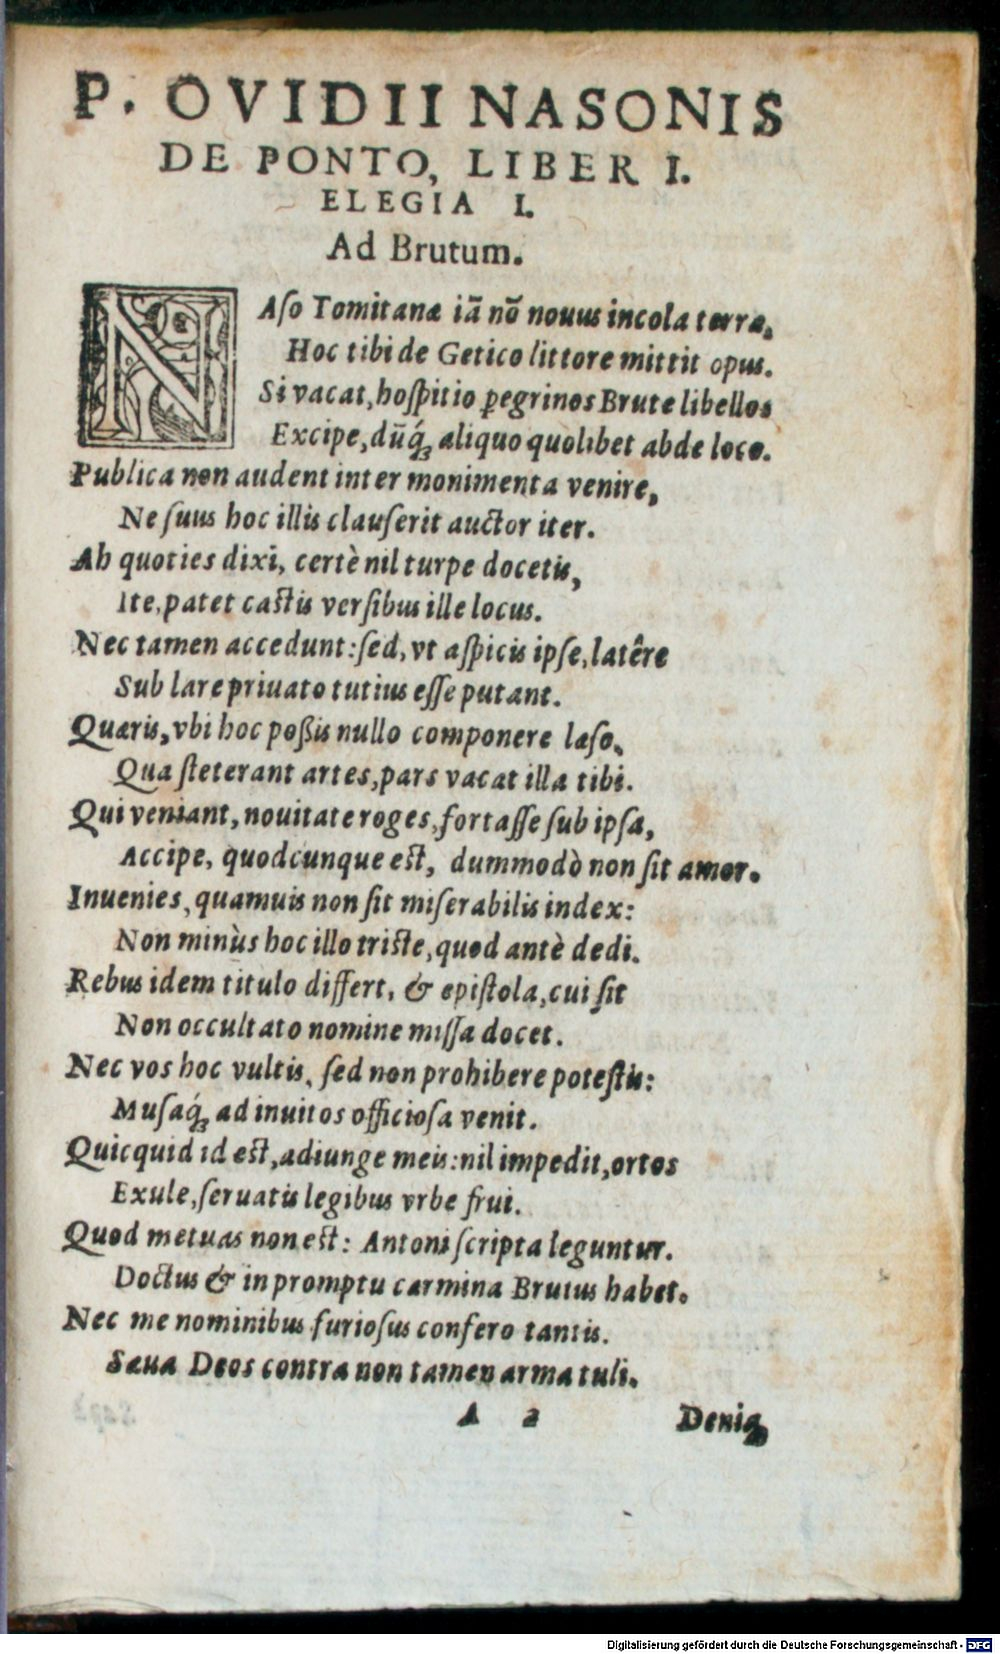 P. OVIDII NASONIS
DE PONTO, LIBER I.
ELEGIA I.
Ad Brutum.
NAſo Tomitanæ iā nō nouus incola terræ,
Hoc tibi de Getico littore mittit opus.
Si vacat, hoſpitio ꝑegrinos Brute libellos
Excipe, dūq́ꝫ aliquo quolibet abde loco.
Publica non audent inter monimenta venire,
Ne ſuus hoc illis clauſerit auctor iter.
Ah quoties dixi, certè nil turpe docetis,
Ite, patet castis verſibus ille locus.
Nec tamen accedunt: ſed, vt aſpicis ipſe, latêre
Sub lare priuato tutius eſſe putant.
Quæris, vbi hoc poßis nullo componere læſo,
Qua ſteterant artes, pars vacat illa tibi.
Qui veniant, nouitate roges, fortaſſe ſub ipſa,
Accipe, quodcunque est, dummodò non ſit amor.
Inuenies, quamuis non ſit miſerabilis index:
Non minùs hoc illo triste, quod antè dedi.
Rebus idem titulo differt, & epiſtola, cui ſit
Non occultato nomine miſſa docet.
Nec vos hoc vultis, ſed non prohibere poteſtis:
Muſaq́ꝫ ad inuitos officioſa venit.
Quicquid id est, adiunge meis: nil impedit, ortos
Exule, ſeruatis legibus vrbe frui.
Quod metuas non est: Antoni ſcripta leguntur.
Doctus & in promptu carmina Brutus habet.
Nec me nominibus furioſus confero tantis.
Sæua Deos contra non tamen arma tuli.
A 2 Deniqꝫ
Digitalisierung gefördert durch die Deutsche Forschungsgemeinschaft - DFG